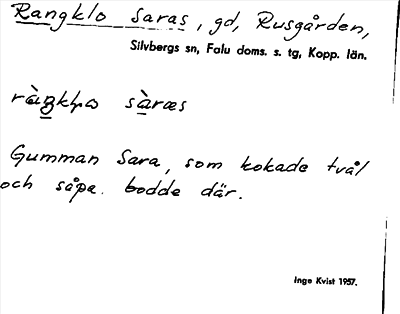 Rangklo Saras, gd, Rusgården,
Silvbergs sn, Falu doms. s. tg, Kopp. län.
Gumman Sara, som kokade tvål
och såpa. bodde där.
Inge Kvist 1957.